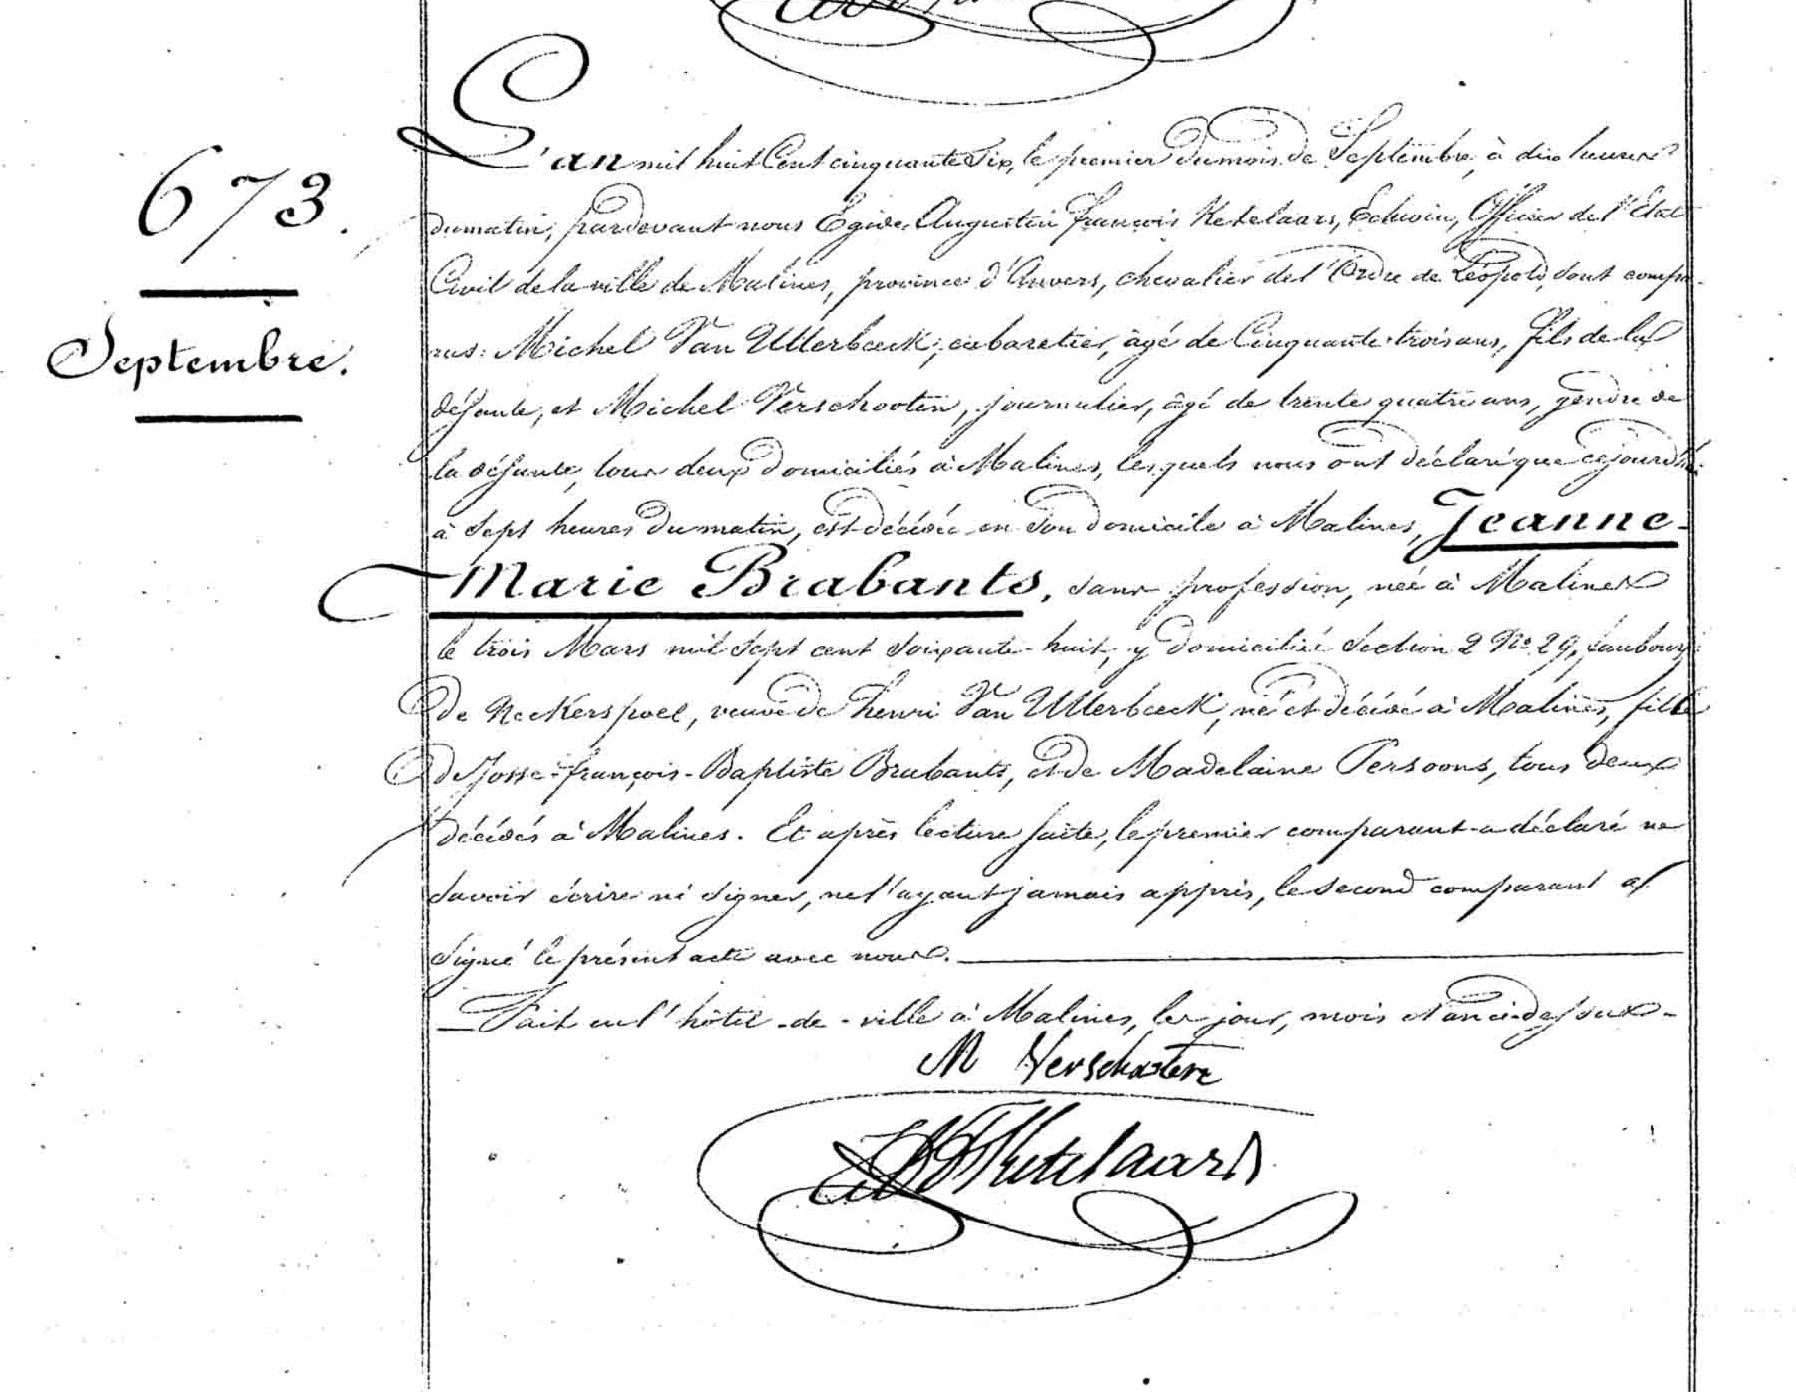 673.
Septembre.
L'an mil huit Cent cinquante Six, le premier du mois de Septembre, à dix heures
du matin, pardevant nous Egide Augustin françois Ketelaars, Echevin, Officier de l'Etat
Civil de la ville de Malines, province d'Anvers, chevalier de l'Ordre de Léopold, sont compa-
rus: Michel Van Utterbeeck, cabaretier, âgé de Cinquante-trois ans, fils de la
défunte, et Michel Verschooten, journalier, âgé de trente quatre ans, gendre de
la défunte, tous deux domiciliés à Malines, lesquels nous ont déclaré que cejourd'hui
à Sept heures du matin, est décédée en Son domicile à Malines, Jeanne-
Marie Brabants, sans profession, née à Malines
le trois Mars mil Sept cent Soixante-huit, y domiciliée Section 2 No 29, faubourg
de Neckerspoel, veuve de henri Van Utterbeeck, né et décédé à Malines, fille
de Josse-françois-Baptiste Brabants, et de Madelaine Persoons, tous deux
décédés à Malines. Et après lecture faite, le premier comparant a déclaré ne
Savoir écrire ni Signer, ne l'ayant jamais appris, le Second comparant a
Signé le présent acte avec nous.
Fait en l'hôtel-de-ville à Malines, les jour, mois et an ci-dessus.
M Verschooten
Ketelaars